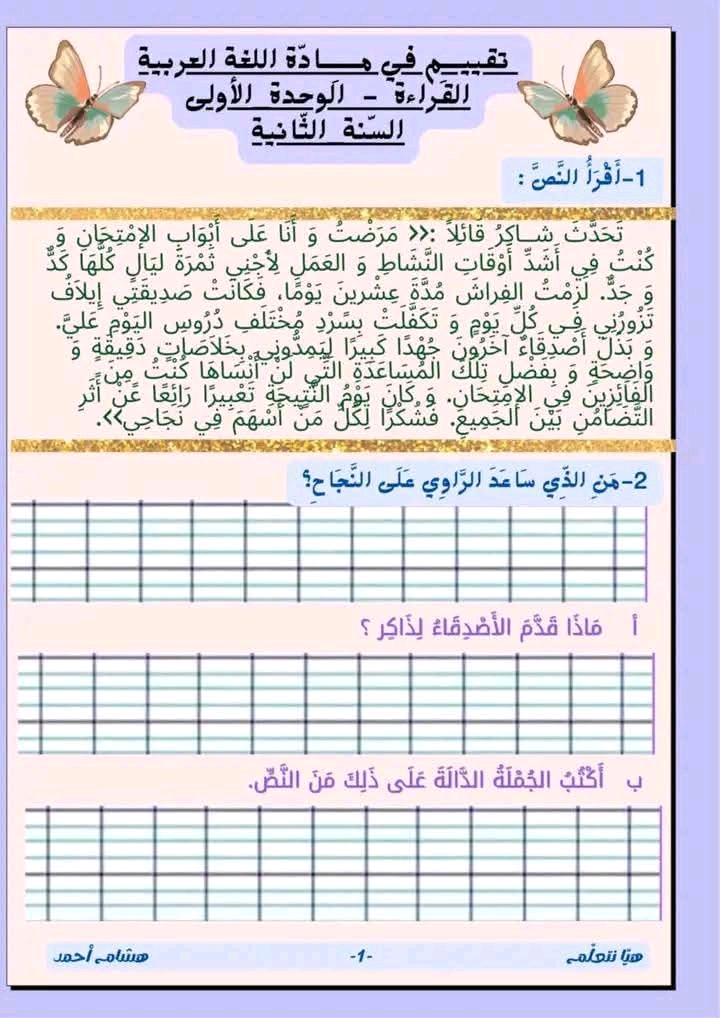 تقييـــم في مـــــادّة اللغة العربية
القراءة - الوحدة الأولى
السّنة الثّانية
1-أَقْرَأُ النَّصَّ :
تَحَدَّثَ شــاكِرُ قائِلاً :<< مَرَضْتُ وَ أَنَا عَلَى أَبْوَابِ الإمْتِحَانِ وَ
كُنْتُ فِي أَشَدِّ أَوْقَاتِ النَّشَاطِ وَ العَمَلِ لِأَجْنِي ثَمْرَةَ لَيَالٍ كُلُّهَا كَدٌّ
وَ جَدٌّ. لَزِمْتُ الفِراشَ مُدَّةَ عِشْرينَ يَوْمًا، فَكَانَتْ صَدِيقَتِي إِيلاَفُ
تَزُورُنِي فِـي كُلِّ يَوْمٍ وَ تَكَفَّلَتْ بِسَرْدِ مُخْتَلَفِ دُرُوسِ اليَوْمِ عَليَّ.
وَ بَذَلَ أَصْدِقَاءٌ آخَرُونَ جُهْدًا كَبِيرًا لِيَمِدُّونِي بِخَلاَصَاتٍ دَقِيقَةٍ وَ
وَاضِحَةٍ وَ بِفَضْلِ تِلْكَ المُسَاعَدَةِ التَّي لَنْ أَنْسَاهَا كُنْتُ مِنَ
الفَائِزِينَ فِي الإمِتِحَانِ. وَ كَانَ يَوْمُ النَّتِيجَةِ تَعْبِيرًا رَائِعًا عَنْ أَثَرِ
التَّضَامُنِ بَيْنَ الجَمِيعِ. فَشُكْرًا لِكُلِّ مَنْ أَسْهَمَ فِي نَجَاحِي>>.
2-مَنِ الذّي سَاعَدَ الرَّاوِي عَلَى النَّجَاحِ؟
أ مَاذَا قَدَّمَ الأَصْدِقَاءُ لِذَاكِر ؟
ب أَكْتُبُ الجُمْلَةُ الدَّالَةَ عَلَى ذَلِكَ مَنَ النَّصِّ.
هيّا نتعلّم -1- هشام أحمد